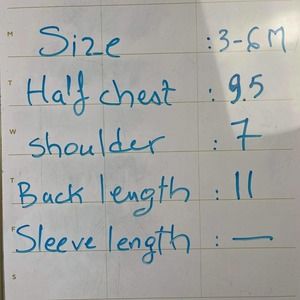 M
Size : 3-6M
T
Half chest : 9.5
W
shoulder : 7
T
Back length : 11
F
Sleeve length : —
S